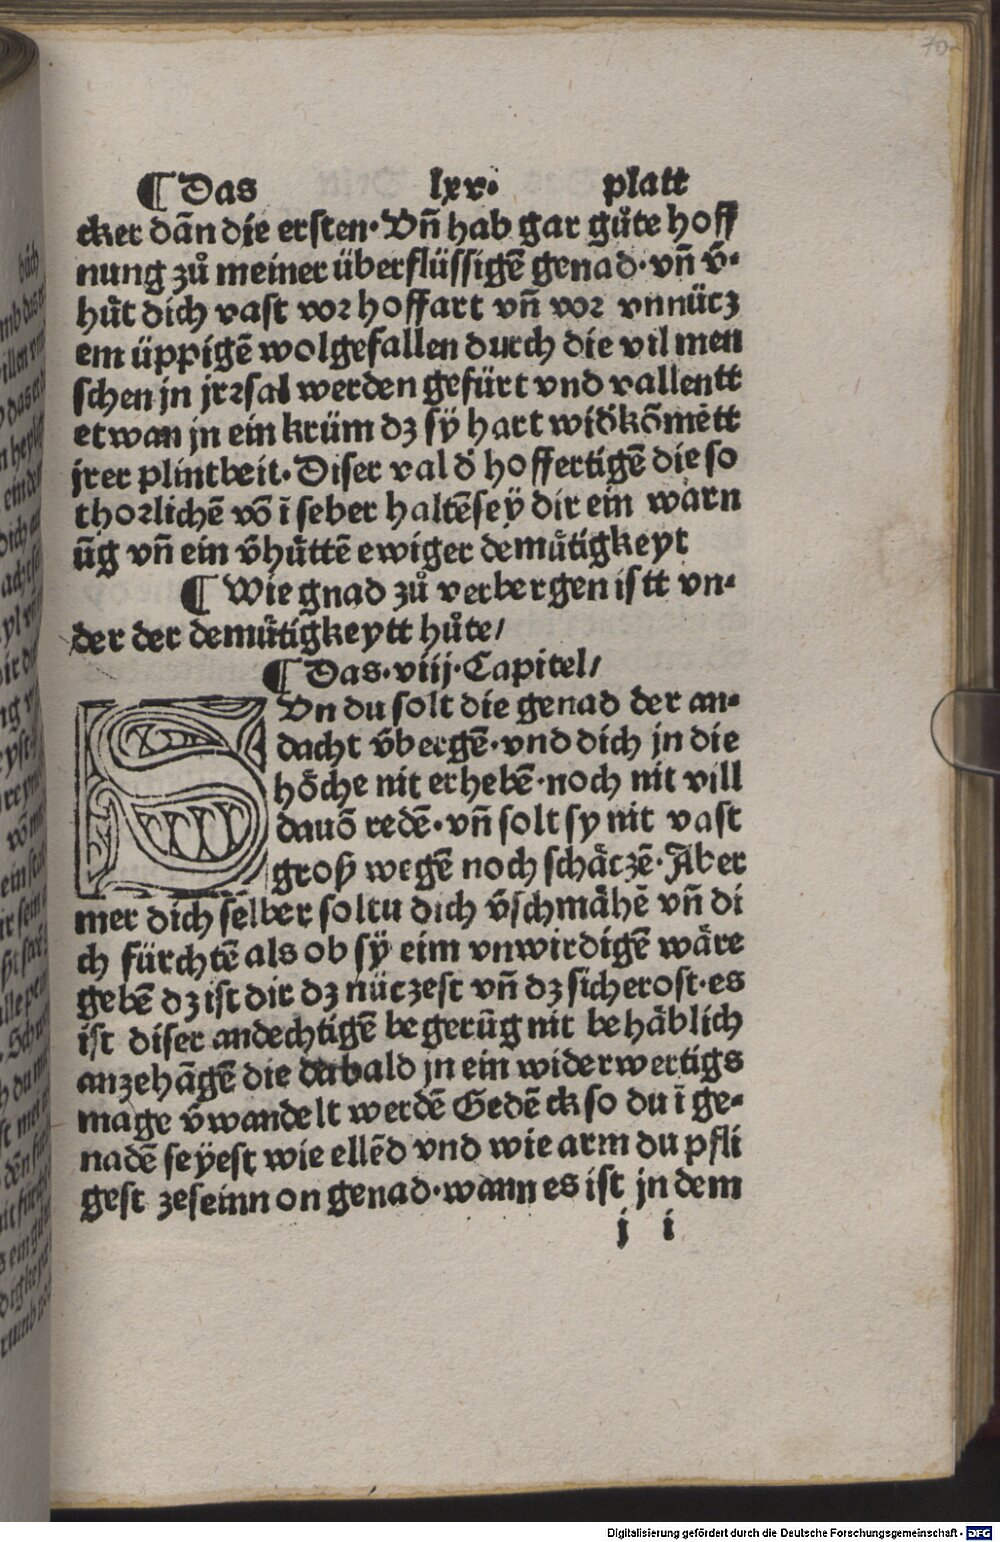 70
¶ Das lxv· platt
cker dãn die ersten· Vñ hab gar gůte hoff
nung zů meiner überflüssigẽ genad· vñ v̄·
hůt dich vast vor hoffart vñ vor vnnücz
em üppigẽ wolgefallen durch die vil men
schen jn jrꝛsal werden gefürt vnd vallentt
etwan jn ein krüm dz sÿ hart wid̃kõmẽtt
jrer plintheit· Diser val d̃ hoffertigẽ die so
thorlichẽ võ ĩ selber haltẽ seÿ dir ein warn
ũg vñ ein v̄hůttẽ ewiger demůtigkeyt
¶ Wie gnad zů verbergen istt vn⸗
der der demůtigkeytt hůte/
¶ Das·viij·Capitel/
SVn du solt die genad der an⸗
dacht v̄bergẽ·vnd dich jn die
höche nit erhebẽ·noch nit vill
dauõ redẽ·vñ solt sy nit vast
groß wegẽ noch schäczẽ·Aber
mer dich selber soltu dich v̄schmähẽ vñ di
ch fürchtẽ als ob sÿ eim vnwirdigẽ wäre
gebẽ dz ist dir dz nüczest vñ dz sicherost·es
ist diser andechtigẽ begerũg nit behäblich
anzehãgẽ die dabald jn ein widerwertigs
mage v̄wandelt werdẽ Gedẽck so du ĩ ge⸗
nadẽ seÿest wie ellẽd vnd wie arm du pfli
gest zeseinn on genad·wann es ist jn dem
j i
Digitalisierung gefördert durch die Deutsche Forschungsgemeinschaft - DFG